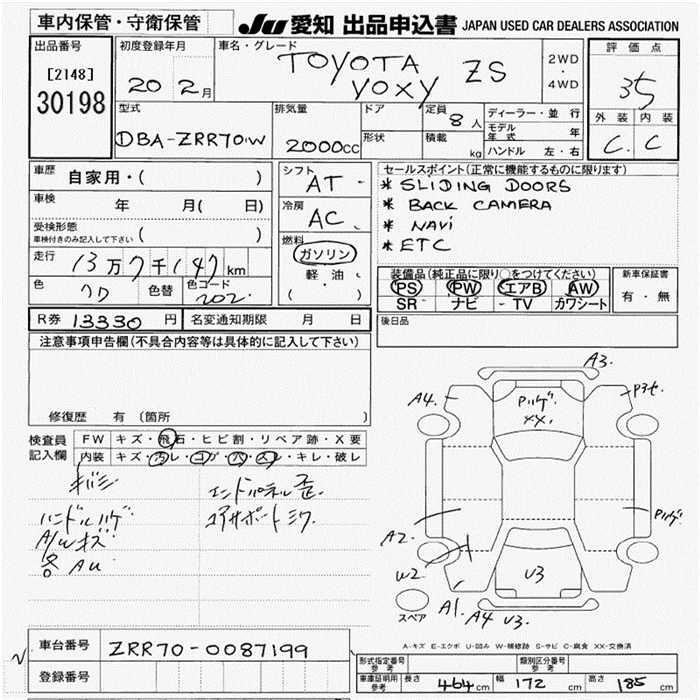 車内保管・守衛保管
JU 愛知 出品申込書 JAPAN USED CAR DEALERS ASSOCIATION
出品番号
[2148]
30198
初度登録年月
20 2月
車名・グレード
TOYOTA VOXY ZS
2WD
・
4WD
評価点
35
外装 内装
C. C
型式
DBA-ZRR70W
排気量
2000cc
ドア
形状
定員
8人
積載
kg
ディーラー・並行
モデル年式 年
ハンドル 左・右
車歴
自家用・( )
車検
年 月( 日)
受検形態
車検付きのみ記入して下さい ( )
走行
13万7千147km
色
クロ
色替
色コード
202
シフト
AT
冷房
AC
燃料
ガソリン
軽油
( ・ )
セールスポイント(正常に機能するものに限ります)
* SLIDING DOORS
* BACK CAMERA
* NAVi
* ETC
装備品(純正品に限り○をつけてください)
PS PW エアB AW
SR ナビ TV カワシート
新車保証書
有・無
R券 13330円
名変通知期限 月 日
後日品
注意事項申告欄(不具合内容等は具体的に記入して下さい)
修復歴 有 (箇所 )
検査員記入欄
FW キズ・飛石・ヒビ割・リペア跡・X要
内装 キズ・汚レ・コゲ・穴・スレ・キレ・破レ
ハンドルハゲ
エンドパネル歪
コアサポートミワ
A/Wキズ
各 AU
A3.
A4.
P3セ.
Pハゲ.
XX.
A2.
Pハゲ.
W2
U3
A1.
A4 U3.
スペア
A-キズ E-エクボ U-凹み W-補修跡 S-サビ C-腐食 XX-交換済
車台番号
ZRR70-0087199
登録番号
形式指定番号 参考
類別区分番号 参考
車庫証明用参考 長さ 464cm 幅 172cm 高さ 185cm